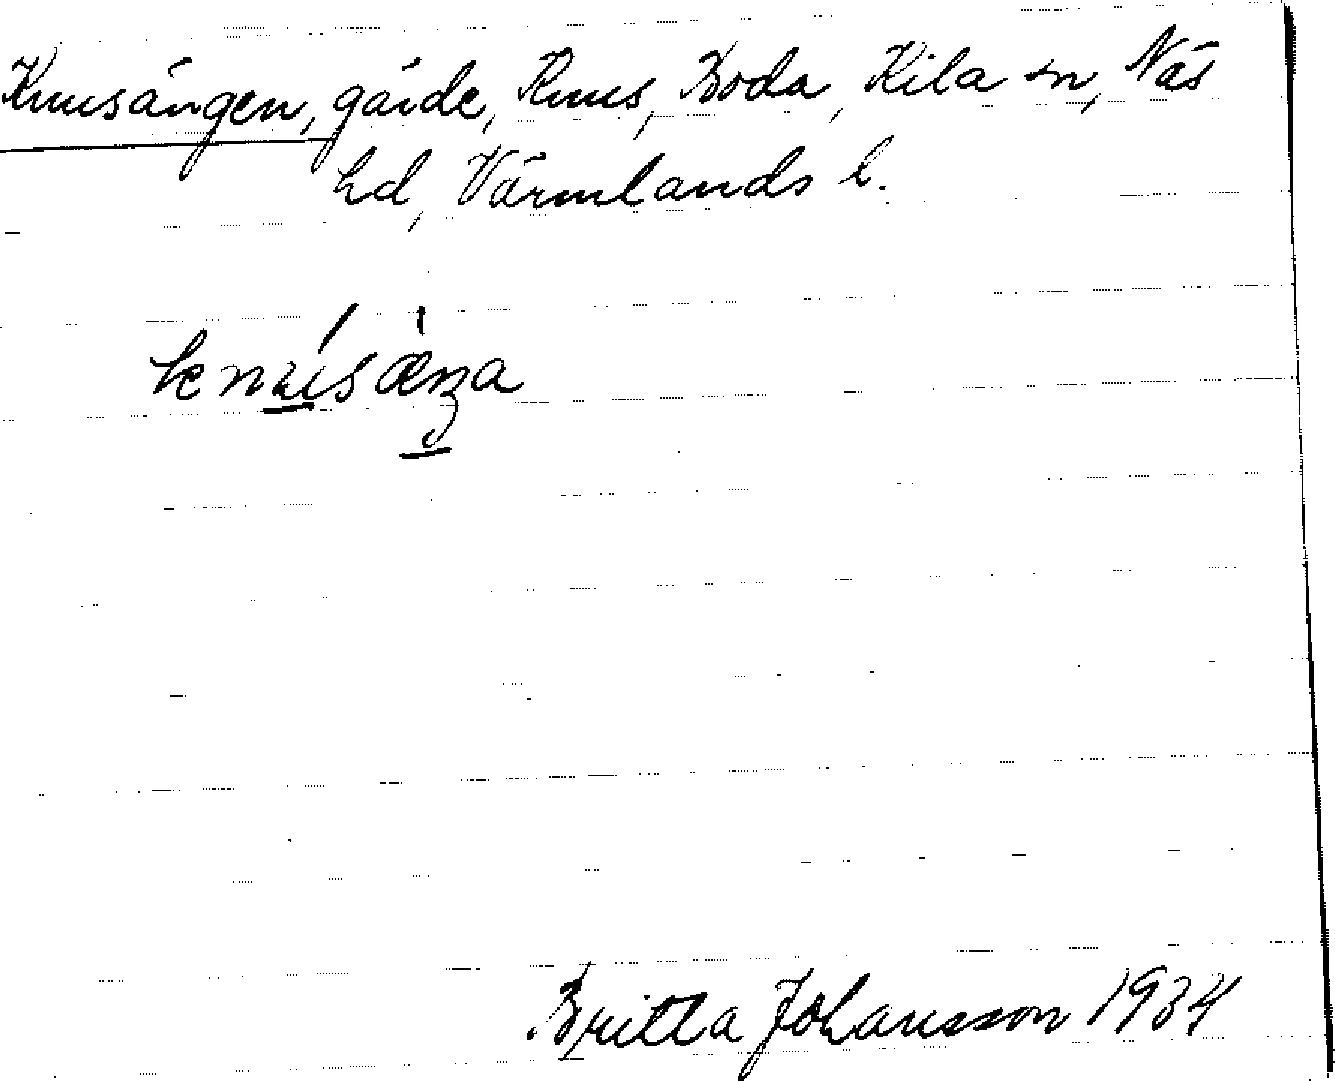 Knusängen, gärde, Knus, Boda, Kila sn, Näs
hd, Värmlands l.
knusæŋa
Britta Johansson 1934